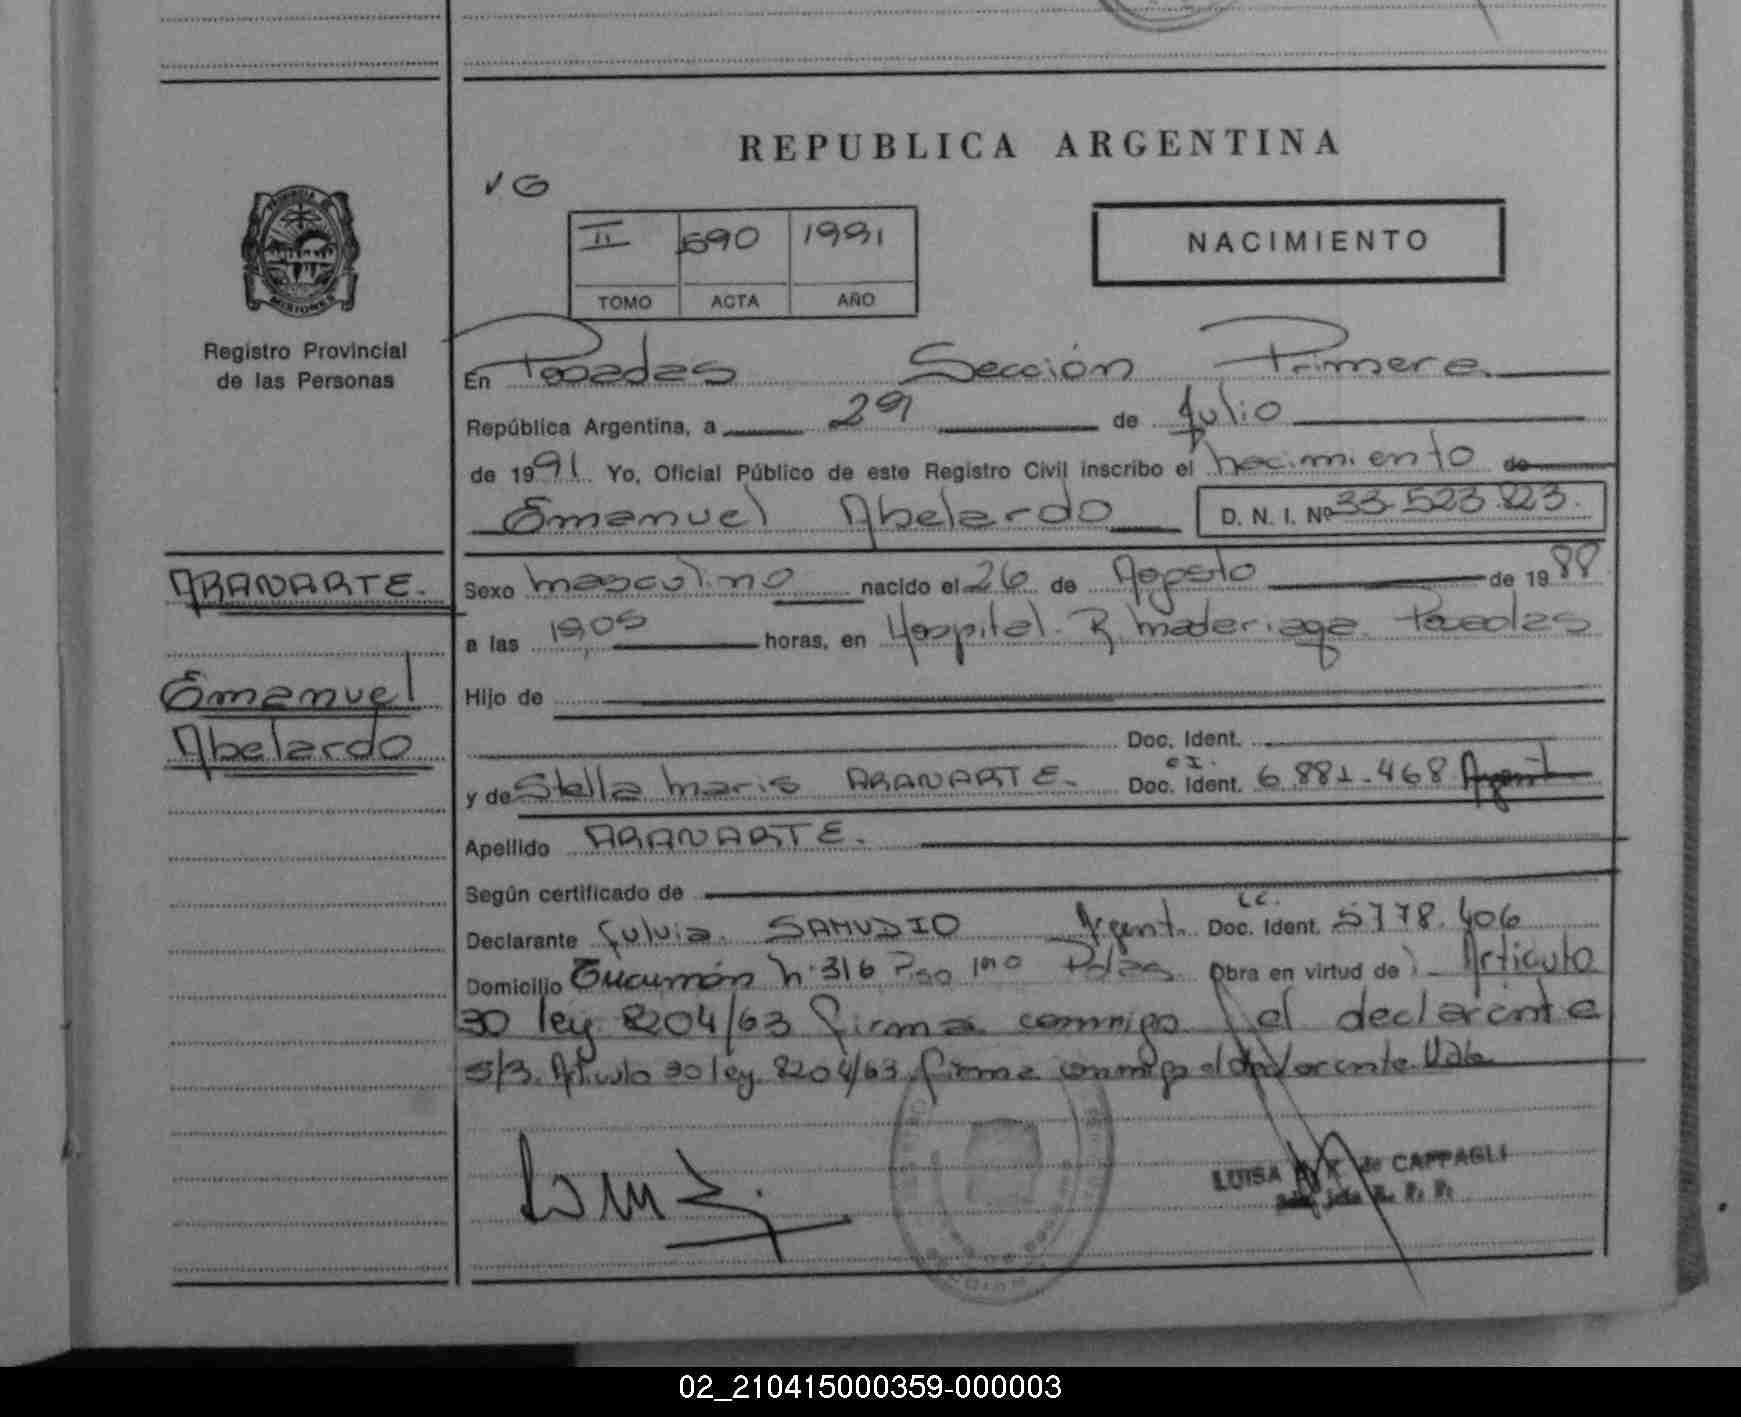 REPUBLICA ARGENTINA
VG
II 690 1991
TOMO ACTA AÑO
NACIMIENTO
PROVINCIA DE
MISIONES
Registro Provincial
de las Personas
En Posadas Sección Primera
República Argentina, a 29 de Julio
de 1991. Yo, Oficial Público de este Registro Civil inscribo el nacimiento de
Emanuel Abelardo D. N. I. Nº 33.523.223.
ARANARTE. Sexo masculino nacido el 26 de Agosto de 1988
a las 19,05 horas, en Hospital R. Madariaga Posadas
Emanuel Hijo de
Abelardo Doc. Ident.
y de Stella Maris ARANARTE. C.I. Doc. Ident. 6.881.468 Argent
Apellido ARANARTE.
Según certificado de
Declarante Fulvia SAMUDIO Argent. L.C. Doc. Ident. 5778.406
Domicilio Tucumán n. 316 Piso 1no Pdas Obra en virtud de Articulo
30 ley 8204/63 firma conmigo el declarante
S/B. Articulo 30 ley 8204/63 firma conmigo el declarante. Vale
LUISA de CAPPAGLI
02_210415000359-000003